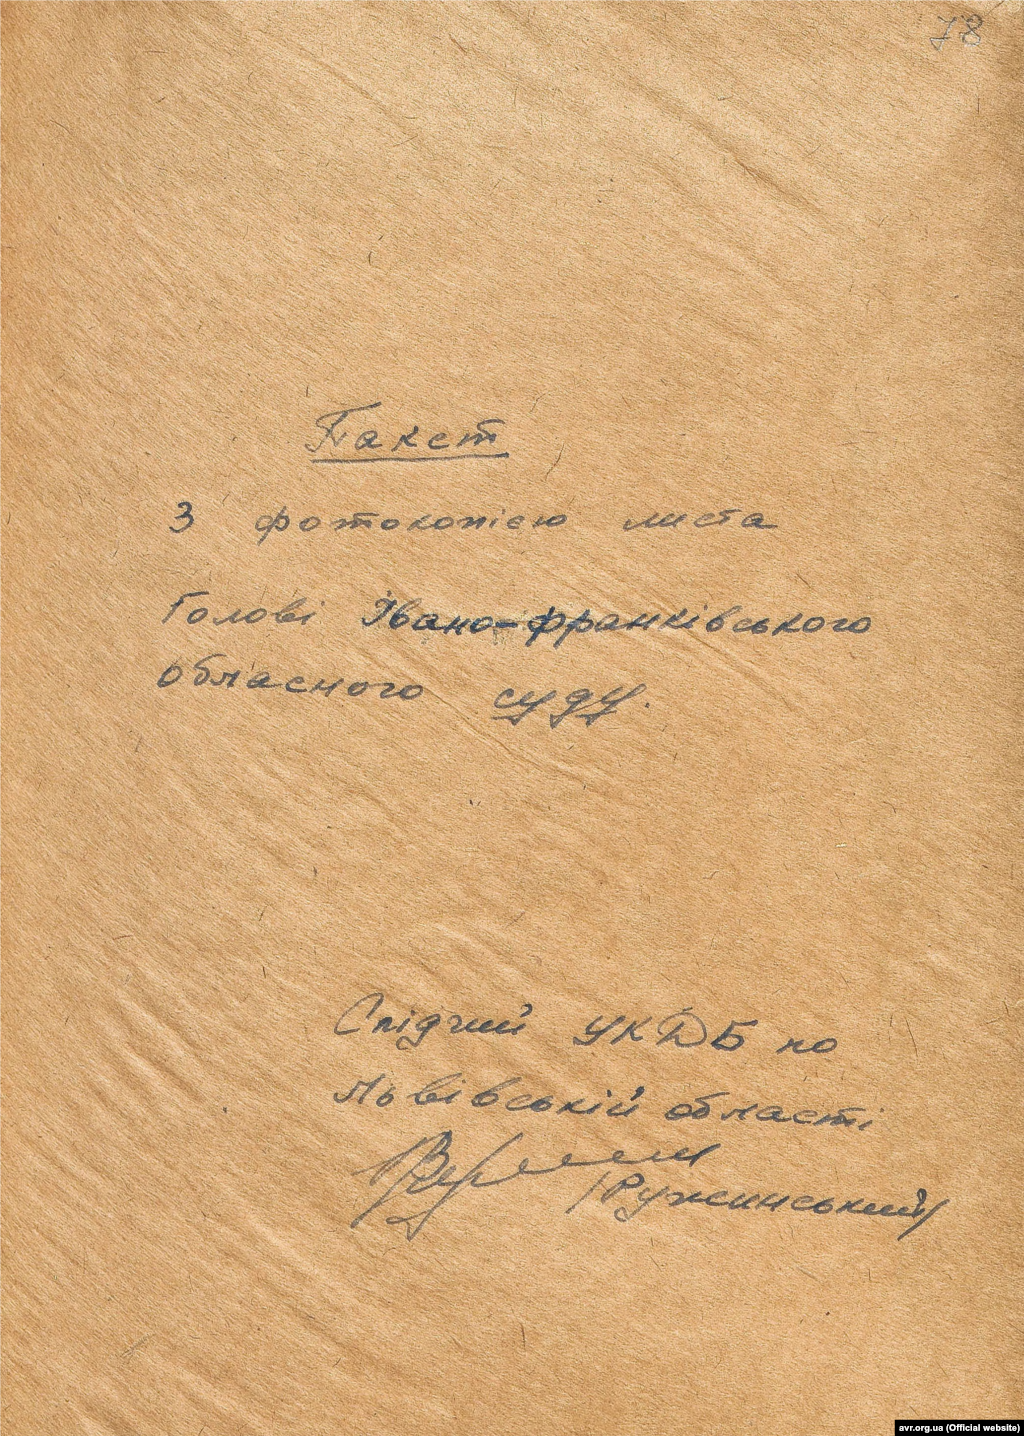 78
Пакет
З фотокопією листа
Голові Івано-франківського
обласного суду.
Слідчий УКДБ по
Львівській області
/Ружинський/
avr.org.ua (Official website)